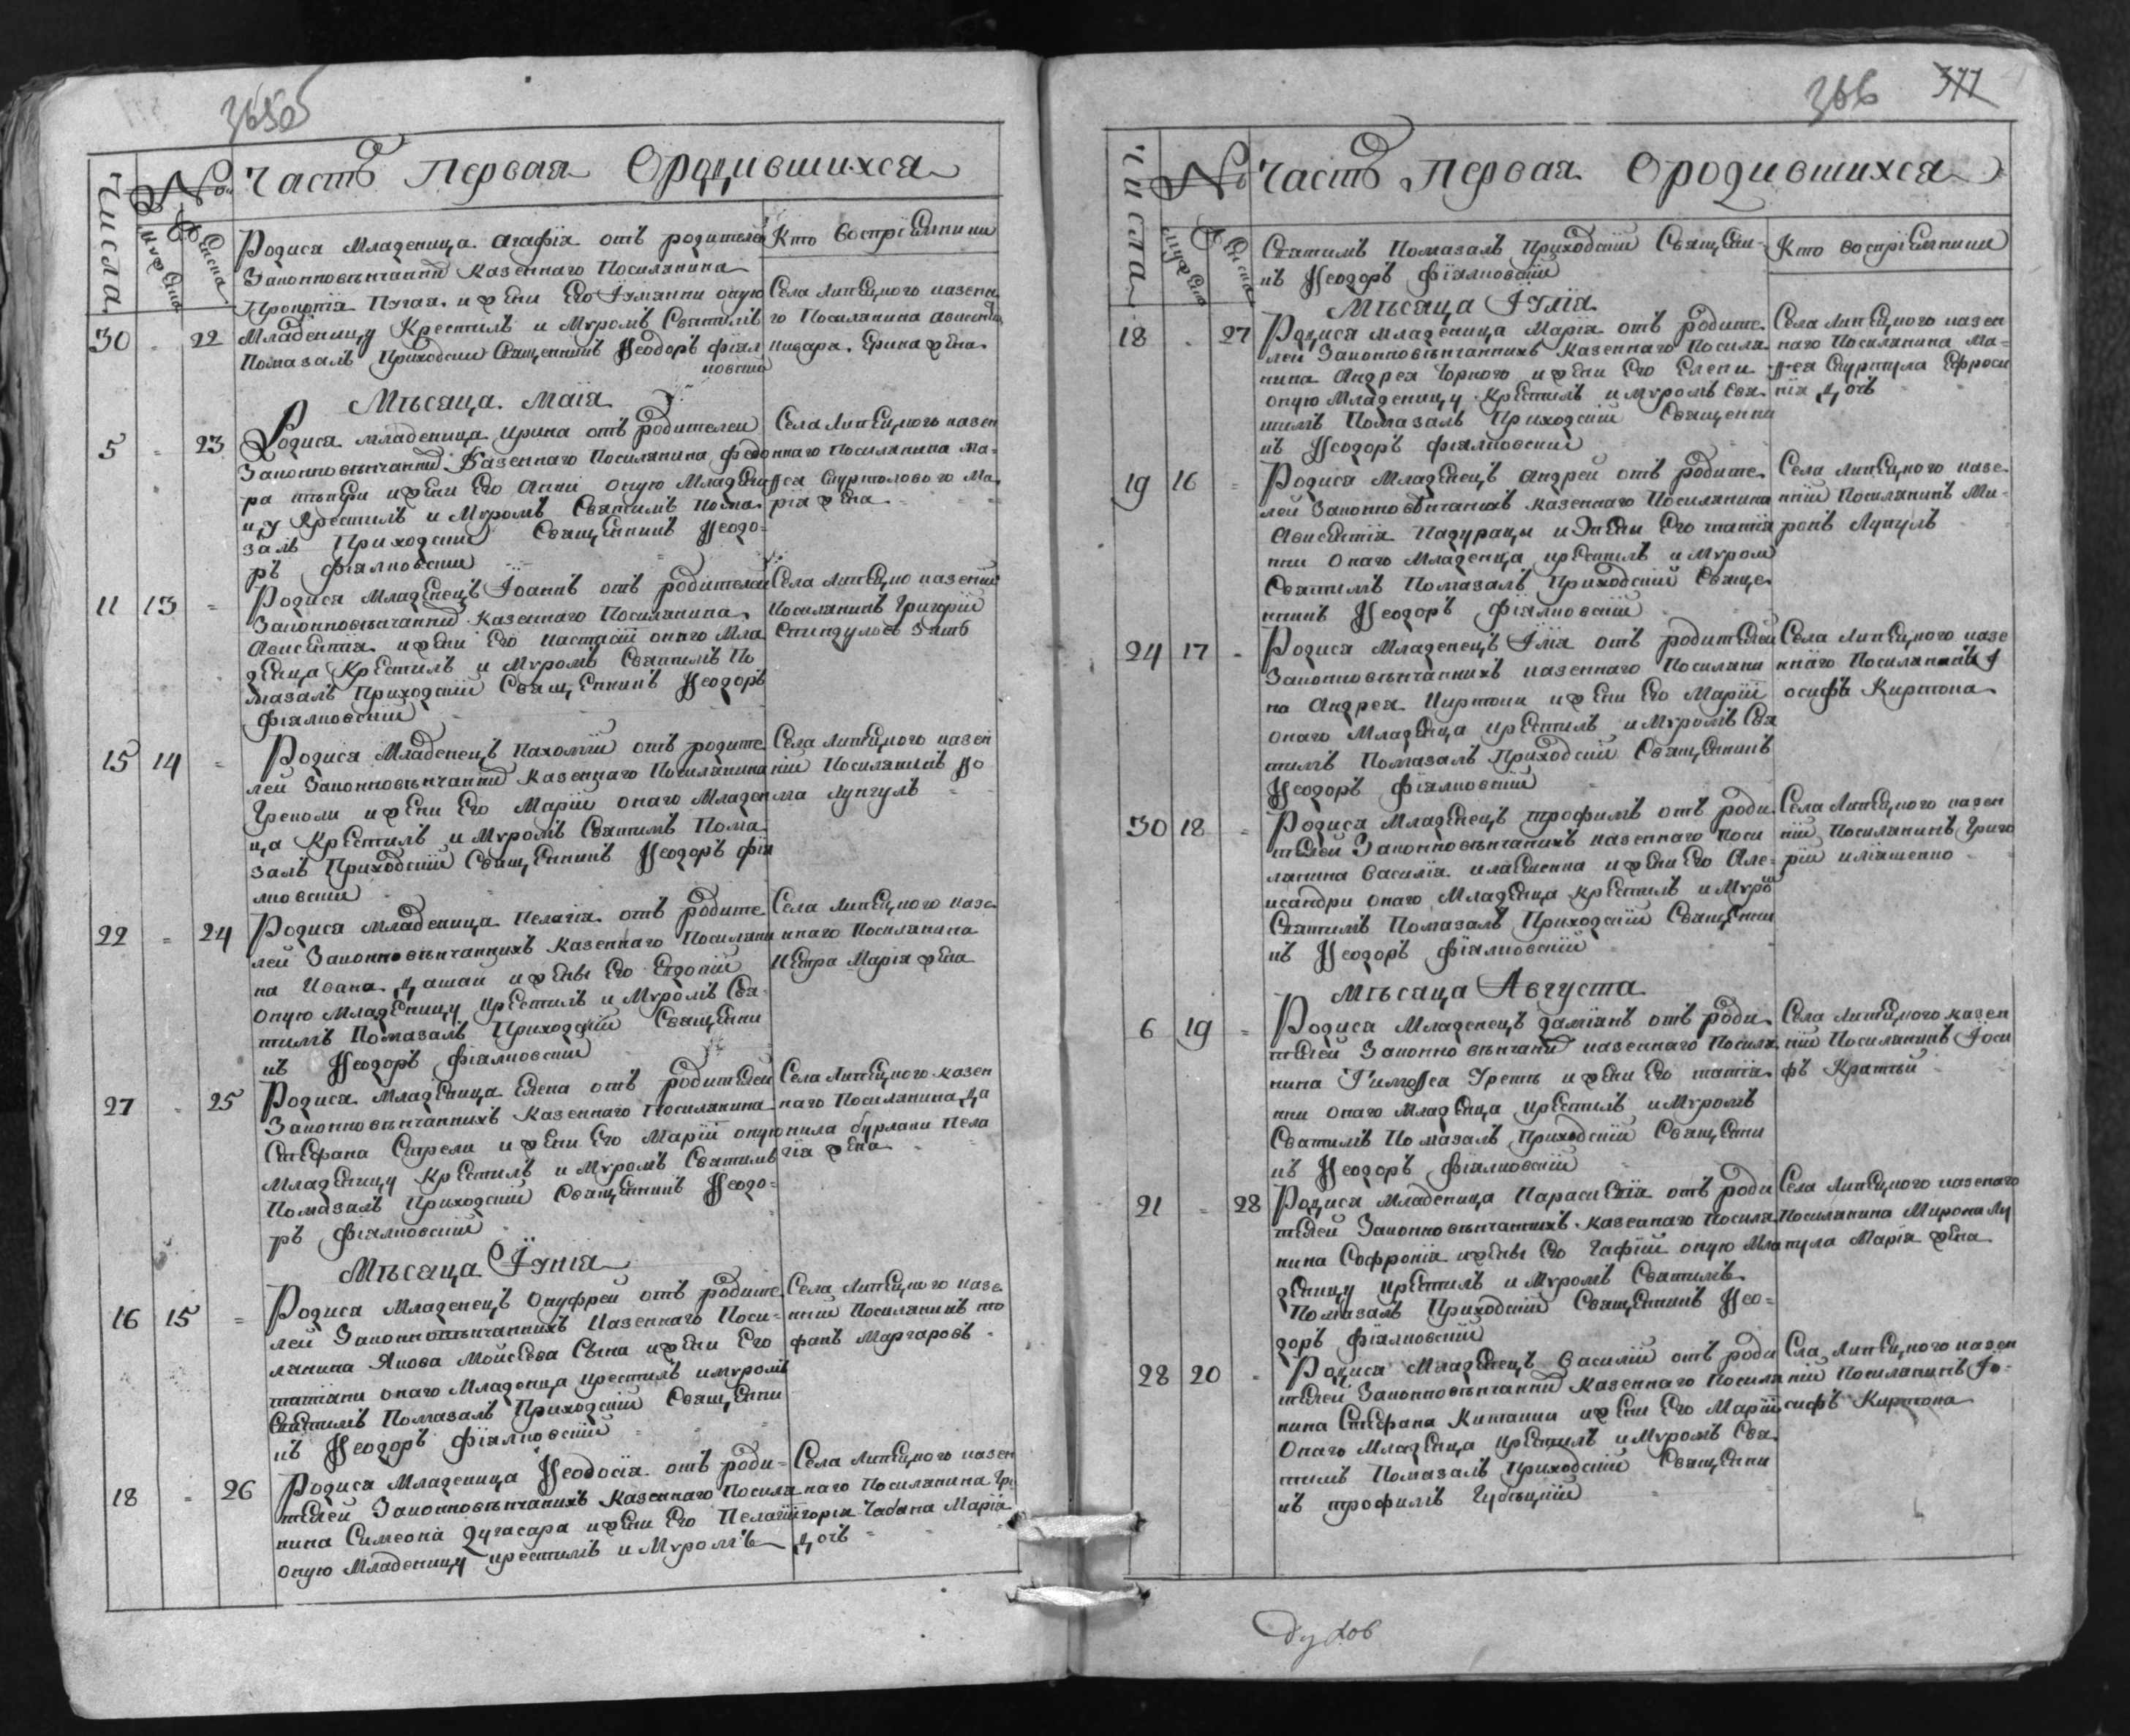 365об
Числа
№
Мужеска
Женска
Часть Первая Ородившихся
Родися Младеница Агафiя отъ родителей
Законновѣнчаннй Казеннаго Посилянина
Прокопiя Пугая и жени Его Iулiянни оную
30 - 22 Младеницу Крестилъ и Мvромъ Святимъ
Помазалъ Приходскiй Священникъ Ѳеодоръ Фiял
ковскiй
Кто Воспрiемники
Села Липецкого казенна
го Посилянина Авксентiя
Ирина жена
Мѣсяца Маiя
5 - 23 Родися младеница Ирина отъ Родителей
Законновѣнчаннй Казеннаго Посилянина Федо
ра и жени Его Анни оную Младени
цу Крестилъ и Мvромъ Святимъ Пома
залъ Приходскiй Священникъ Ѳеодо=
ръ Фiялковскiй
Села Липецкого казен
ннаго посилянина Ма=
ѳея Скуртолового Ма
рiя жена
11 13 = Родися Младенецъ Iоаннъ отъ родителей
Законновѣнчаннй Казеннаго Посилянина
Авксентiя и жени Его Настасiй онаго Мла
денца Крестилъ и Мvромъ Святимъ По
мазалъ Приходскiй Священникъ Ѳеодоръ
Фiялковскiй
Села Липецко казеннй
Посилянинъ Григорiй
Стиндуловъ Зять
15 14 = Родися Младенецъ Пахомiй отъ родите
лей Законновѣнчаннй Казеннаго Посилянина
Греколи и жени Его Марiй онаго Младен
ца Крестилъ и Мvромъ Святимъ Пома
залъ Приходскiй Священникъ Ѳеодоръ Фiя
лковскiй
Села Липецкого казен
нiй Посилянинъ Ѳо
ма Лунгулъ
22 = 24 Родися Младеница Пелагiя отъ родите
лей Законновѣнчаннихъ Казеннаго Посиляни
на Ивана Дашаи и жены Его Евдокiй
оную Младеницу Крестилъ и Мvромъ Свя
тимъ Помазалъ Приходскiй Священни
къ Ѳеодоръ Фiялковскiй
Села Липецкого казе
ннаго Посилянина
Петра Марiя жена
27 - 25 Родися Младеница Елена отъ Родителей
Законновѣнчаннихъ Казеннаго Посилянина
Стефана Стрели и жени Его Марiй оную
Младеницу Крестилъ и Мvромъ Святимъ
Помазалъ Приходскiй Священникъ Ѳеодо=
ръ Фiялковскiй
Села Липецкого казен
наго Посилянина Да
нила Бурлаки Пела
гiя жена
Мѣсяца Iунiя
16 15 = Родися Младенецъ Онуфрей отъ родите
лей Законновѣнчаннихъ Казеннаго Поси=
лянина Якова Мойсеева Сына и жени Его
татiяни онаго Младенца крестилъ и мvромъ
Святимъ Помазалъ Приходскiй Священни
къ Ѳеодоръ Фiялковскiй
Села Липецкого казе
ннiй Посилянинъ то
фанъ Маргаровъ
18 = 26 Родися Младеница Ѳеодосiя отъ роди=
телей Законновѣнчанихъ Казеннаго Посиля
нина Симеона Дугасара и жени Его Пелагiй
оную Младеницу крестилъ и Мvромъ
Села Липецкого казен
наго Посилянина Гри
горiя Чабана Марiя
Дочь
366 377
Числа
№
Мужеска
Женска
Часть Первая Ородившихся
Святимъ Помазалъ Приходскiй Священни
къ Ѳеодоръ Фiялковскiй
Кто воспрiемники
Мѣсяца Iулiя
18 . 27 Родися Младеница Марiя отъ Родите
лей Законновѣнчаннихъ Казеннаго Посиля
нина Андрея Чорного и жени Его Елени
оную Младеницу Крестилъ и Мvромъ Свя
тимъ Помазалъ Приходскiй Священни
къ Ѳеодоръ Фiялковскiй
Села Липецкого казен
наго Посилянина Ма=
ѳея Скуртула Ефроси
нiя Дочь
19 16 = Родися Младенецъ Андрей отъ Родите
лей Законновѣнчанихъ Казеннаго Посилянина
Авксентiя Падурацы и жени Его татiя
нни онаго Младенца крестилъ и Мvром
Святимъ Помазалъ Приходскiй Свяще
нникъ Ѳеодоръ Фiялковскiй
Села Липецкого казе
ннiй Посилянинъ Ми=
ронъ Лупулъ
24 17 - Родися Младенецъ Iлiя отъ родителей
Законновѣнчаннихъ казеннаго Посиляни
на Андрея Киртоки и жени Его Марiй
онаго Младенца крестилъ и Мvромъ Свя
тимъ Помазалъ Приходскiй Священникъ
Ѳеодоръ Фiялковскiй
Села Липецкого казе
ннаго Посилянинъ I
осифъ Киртока
30 18 = Родися Младенецъ трофимъ отъ роди
телей Законновѣнчанихъ казеннаго Поси
лянина Василiя илiяшенка и жени Его Але=
ксандри онаго Младенца крестилъ и Мvро
Святимъ Помазалъ Приходскiй Священни
къ Ѳеодоръ Фiялковскiй
Села Липецкого казен
нiй Посилянинъ Григо
рiй илiяшенко
Мѣсяца Августа
6 19 = Родися Младенецъ Дамiянъ отъ роди
телей Законно вѣнчаннй казеннаго Посиля
нина Тимоѳея Гретъ и жени Его татiя
нни онаго Младенца крестилъ и Мvромъ
Святимъ Помазалъ Приходскiй Священни
къ Ѳеодоръ Фiялковскiй
Села Липецкого казен
нiй Посилянинъ Iоси
фъ Краткiй
21 = 28 Родися Младеница Параскевiя отъ роди
телей Законновѣнчаннихъ казеннаго Посиля
нина Софронiя и жены Его Гафiй оную Мла
деницу крестилъ и Мvромъ Святимъ
Помазалъ Приходскiй Священникъ Ѳео=
доръ Фiялковскiй
Села Липецкого казенаго
Посилянина Мирона Лу
пула Марiя жена
28 20 - Родися Младенецъ Василiй отъ роди
телей Законновѣнчаннй Казеннаго Посиля
нина Стефана Китайки и жени Его Марiй
Онаго Младенца крестилъ и Мvромъ Свя
тимъ Помазалъ Приходскiй Священни
къ трофимъ Губѣцкiй
Села Липецкого казен
нiй Посилянинъ Iо=
сифъ Киртока
Духов